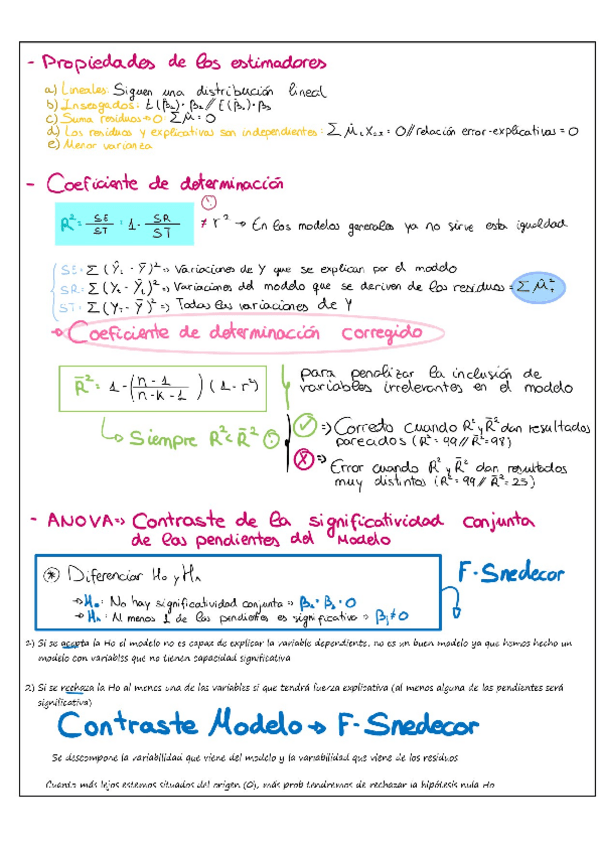 - Propiedades de los estimadores
a) Lineales: Siguen una distribución lineal
b) Insesgados: E(β̂₂)=β₂ // E(β̂₃)=β₃
c) Suma residuos=0: Σμ̂=0
d) Los residuos y explicativas son independientes: Σμ̂ᵢXₖᵢ=0 // relación error-explicativas=0
e) Menor varianza
- Coeficiente de determinación
R² = SE/ST = 1 - SR/ST ≠ r² → En los modelos generales ya no sirve esta igualdad
SE = Σ(Ŷᵢ - Ȳ)² => Variaciones de Y que se explican por el modelo
SR = Σ(Yᵢ - Ŷᵢ)² => Variaciones del modelo que se deriven de los residuos = Σμ̂ᵢ²
ST = Σ(Yᵢ - Ȳ)² => Todas las variaciones de Y
→ Coeficiente de determinación corregido
R̄² = 1 - (n-1/n-k-1) (1-r²)
para penalizar la inclusión de
variables irrelevantes en el modelo
↳ Siempre R²<R̄²
=> Correcto cuando R² y R̄² dan resultados
pareados (R²=99 // R̄²=98)
=> Error cuando R² y R̄² dan resultados
muy distintos (R²=99 // R̄²=25)
- ANOVA => Contraste de la significatividad conjunta
de las pendientes del Modelo
* Diferenciar H₀ y H₁
F-Snedecor
→ H₀: No hay significatividad conjunta => β₂=β₃=0
→ H₁: Al menos 1 de las pendientes es significativa => βⱼ≠0
1) Si se acepta la Ho el modelo no es capaz de explicar la variable dependiente, no es un buen modelo ya que hemos hecho un
modelo con variables que no tienen capacidad significativa
2) Si se rechaza la Ho al menos una de las variables si que tendrá fuerza explicativa (al menos alguna de las pendientes será
significativa)
Contraste Modelo → F-Snedecor
Se descompone la variabilidad que viene del modelo y la variabilidad que viene de los residuos
Cuanto más lejos estemos situados del origen (0), más prob tendremos de rechazar la hipótesis nula Ho